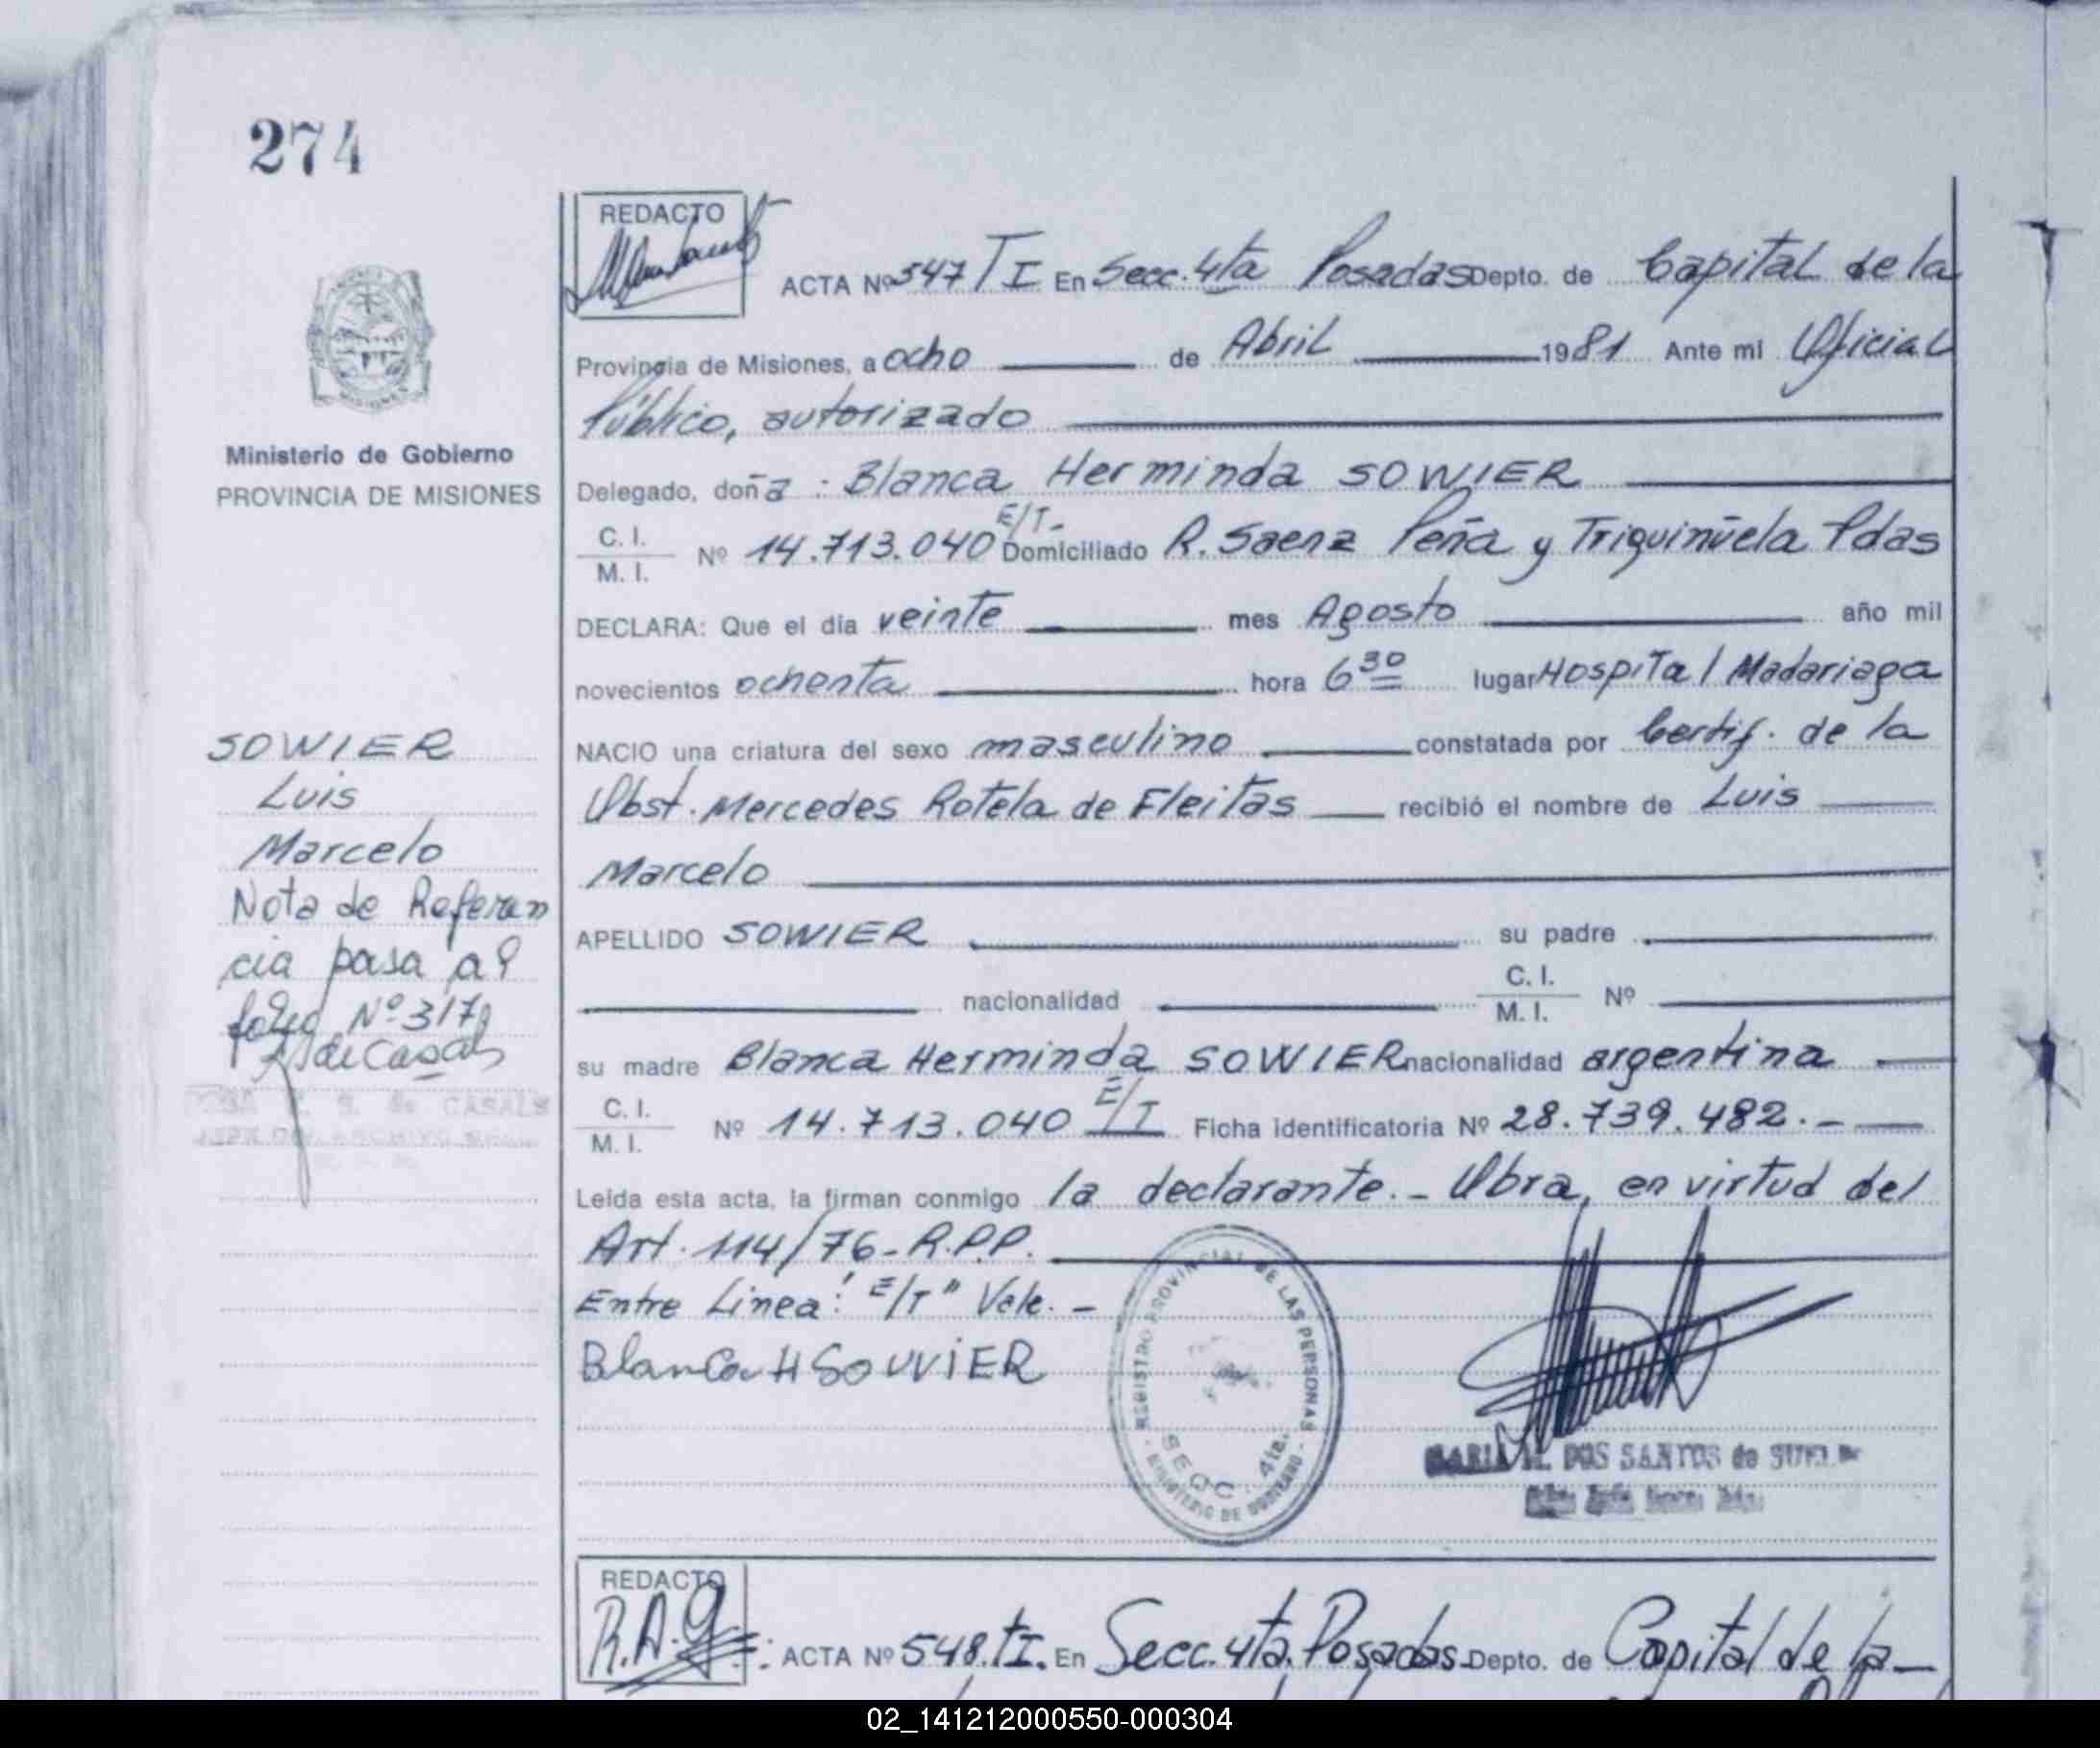 274
REDACTO
ACTA Nº 547 / T I En Secc. 4ta Posadas Depto. de Capital de la
Provincia de Misiones, a ocho de Abril 1981 Ante mi Oficial
Público, autorizado
Ministerio de Gobierno
PROVINCIA DE MISIONES
Delegado, doña : Blanca Herminda SOWIER
E/T-
C. I.
M. I. Nº 14.713.040 Domiciliado R. Saenz Peña y Triguiñuela Pdas
DECLARA: Que el día veinte mes Agosto año mil
novecientos ochenta hora 6 30 lugar Hospital Madariaga
NACIO una criatura del sexo masculino constatada por Certif. de la
Obst. Mercedes Rotela de Fleitas recibió el nombre de Luis
Marcelo
APELLIDO SOWIER su padre
nacionalidad C. I. M. I. Nº
su madre Blanca Herminda SOWIER nacionalidad argentina
C. I. M. I. Nº 14.713.040 E/T Ficha identificatoria Nº 28.739.482.-
Leída esta acta, la firman conmigo la declarante.- Obra, en virtud del
Art. 114/76-R.P.P.
Entre Linea: "E/T" Vale.-
Blanca H SOUVIER
SOWIER
Luis
Marcelo
Nota de Referen
cia pasa al
folio Nº 317
de Casals
de CASALS
REGISTRO PROVINCIAL DE LAS PERSONAS
SECC. 4ta.
MINISTERIO DE GOBIERNO
MARIA M. DOS SANTOS de
REDACTO
R.A.G.
ACTA Nº 548. TI. En Secc. 4ta. Posadas Depto. de Capital de la
02_141212000550-000304